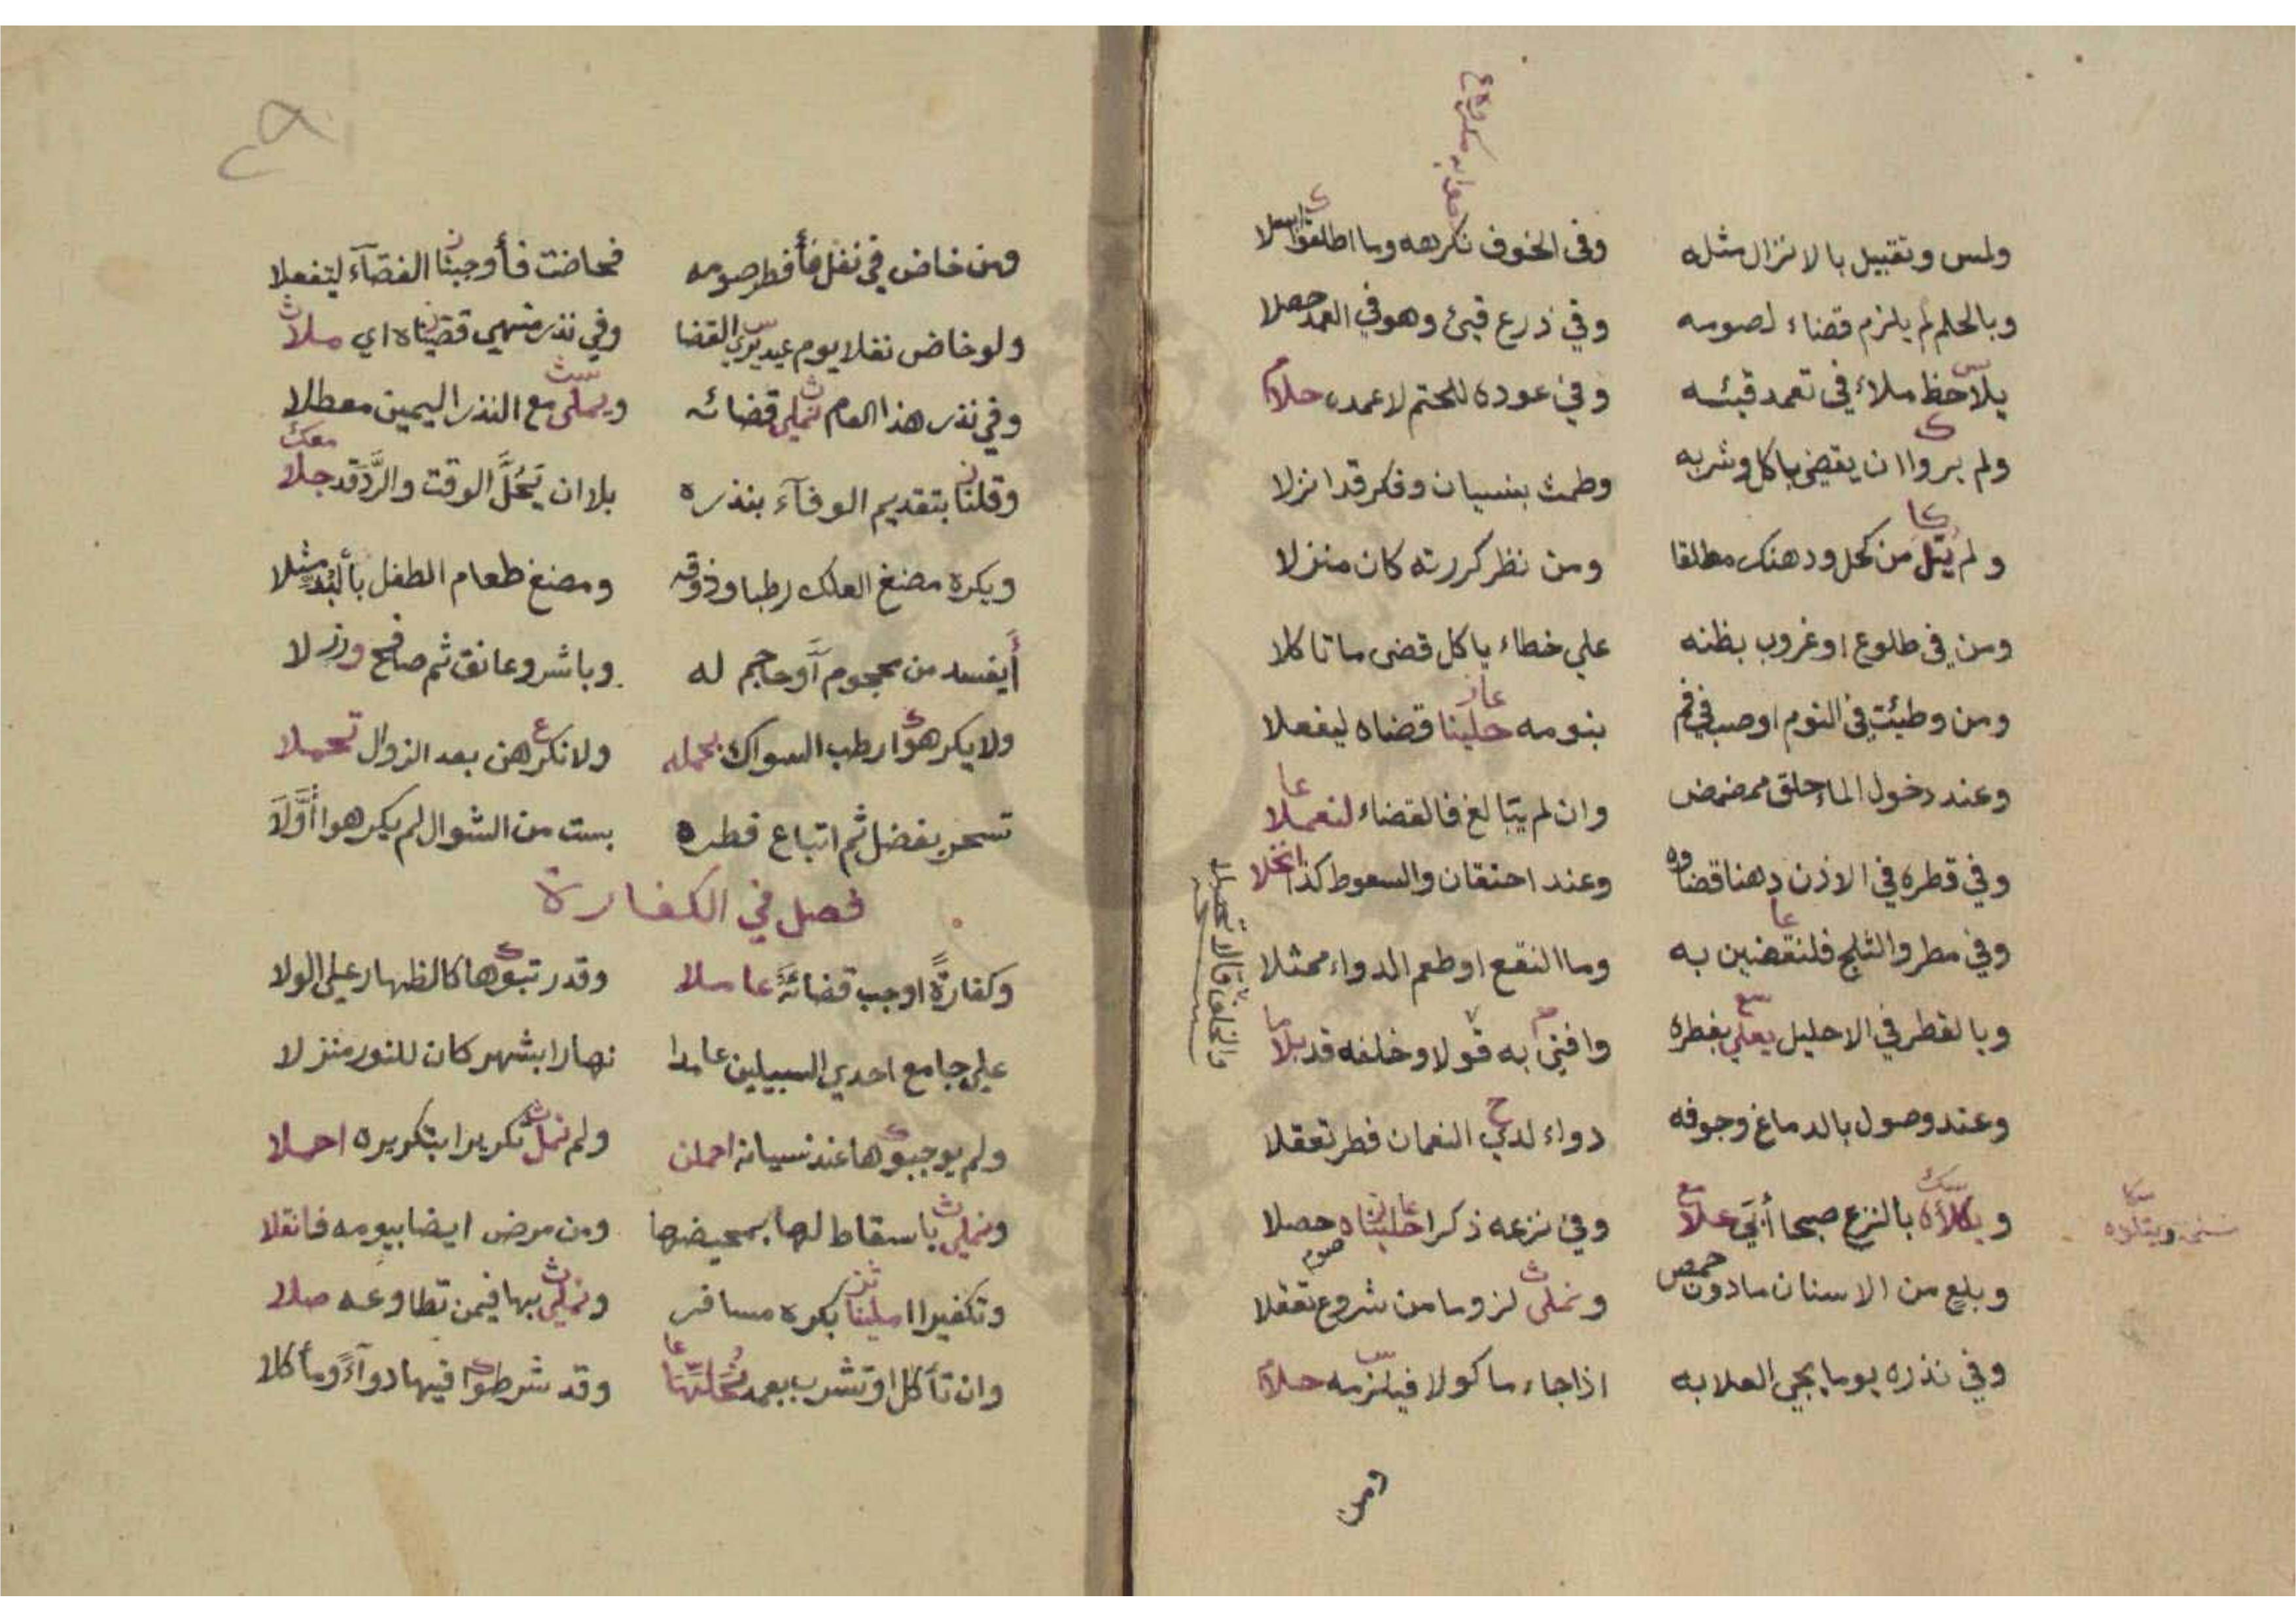 ولمس وتقبيل بالانزال مثله وفى الخوف نكرهه وما اطلقوا
وبالحلم لم يلزم قضاء لصومه وفي ذرع قيئ وهو في العمد حصلا
يلاحظ ملاء في تعمد قيئه وفي عوده للختم لا عمده حلا
ولم يروا ان يقضى باكل وشربه وطمث بنسيان وفكر قد انزلا
ولم يتل من كحل ودهنك مطلقا ومن نظر كررته كان منزلا
ومن في طلوع او غروب بظنه على خطاء ياكل قضى ما تاكلا
ومن وطئت في النوم او صب في فم بنومه حلينا قضاه ليفعلا
وعند دخول الماء حلق ممضمض وان لم يبالغ فالقضاء لنعملا
وفي قطره في الاذن دهنا قضاؤه وعند احتقان والسعوط كذا انجلا
وفي مطر والثلج فلنقضين به وما النقع او طعم الدواء ممثلا
وبالقطر في الاحليل يعلي بفطره وافتى به قولا وخلفه قد بلا
وعند وصول بالدماغ وجوفه دواء لدى النعمان فطر تعقلا
بالنزع صبحا أبي علا وفي نزعه ذكرا حليناه حصلا
وبلع من الاسنان ما دون حمص ونملى لزوما من شروع صوم تعقلا
وفي نذره يوما يجي العلا به اذا جاء ماكولا فيلزمه حلا
ومن خاض في نفل فأفطر صومه فحاضت فأوجبنا القضآء ليفعلا
ولو خاض نفلا يوم عيد يرى القضا وفي نذر منهي قضيناه اي ملا
وفي نذر هذا العام نملي قضائه ويملى مع النذر اليمين معطلا
وقلنا بتقديم الوفآء بنذره بلا ان يحل الوقت والرد قد جلا
ويكره مضغ العلك رطبا وذوقه ومضغ طعام الطفل
أيفسد من محجوم آو حاجم له وباشر وعانق ثم صافح
ولا يكرهوا رطب السواك بحمله ولا نكرهن بعد الزوال تحملا
تسحر بفضل ثم اتباع فطره بست من الشوال لم يكرهوا أولا
فصل في الكفارة
وكفارة اوجب قضائه عاملا وقد رتبوها كالظهار على الولا
على جامع احدي السبيلين عامدا نهارا بشهر كان للنور منزلا
ولم يوجبوها عند نسيانه احملن ولم نمل تكريرا بتكريره احملا
ونملي باسقاط لها بمحيضها ومن مرض ايضا بيومه فانقلا
وتكفيرا املينا بكره مسافر ونملي بها فيمن تطاوعه صلا
وان تأكل او تشرب بعمد وقد شرطوا فيها دوآء ومأكلا